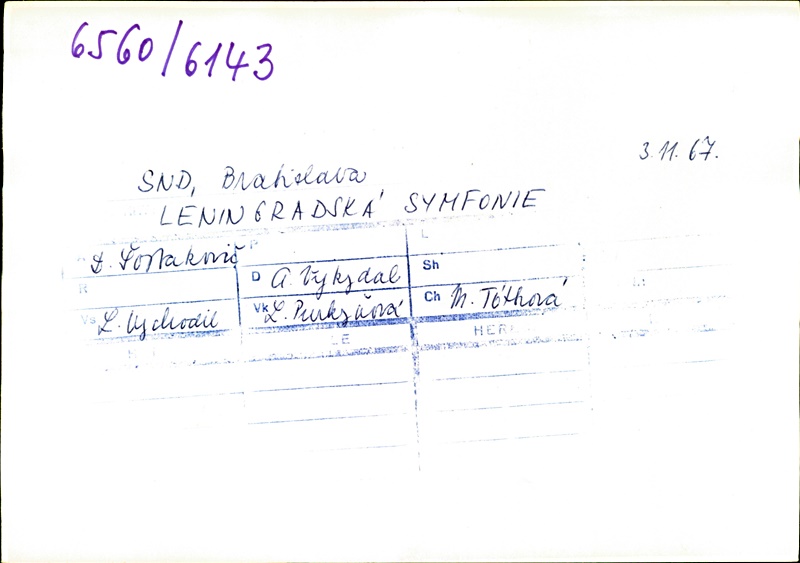 6560/6143
3.11.67.
SND, Bratislava
LENINGRADSKÁ SYMFONIE
D. Šostakovič P L
R D A. Vykydal Sh
Vs L. Vychodil Vk L. Purkyňová Ch M. Tóthová
LE HER